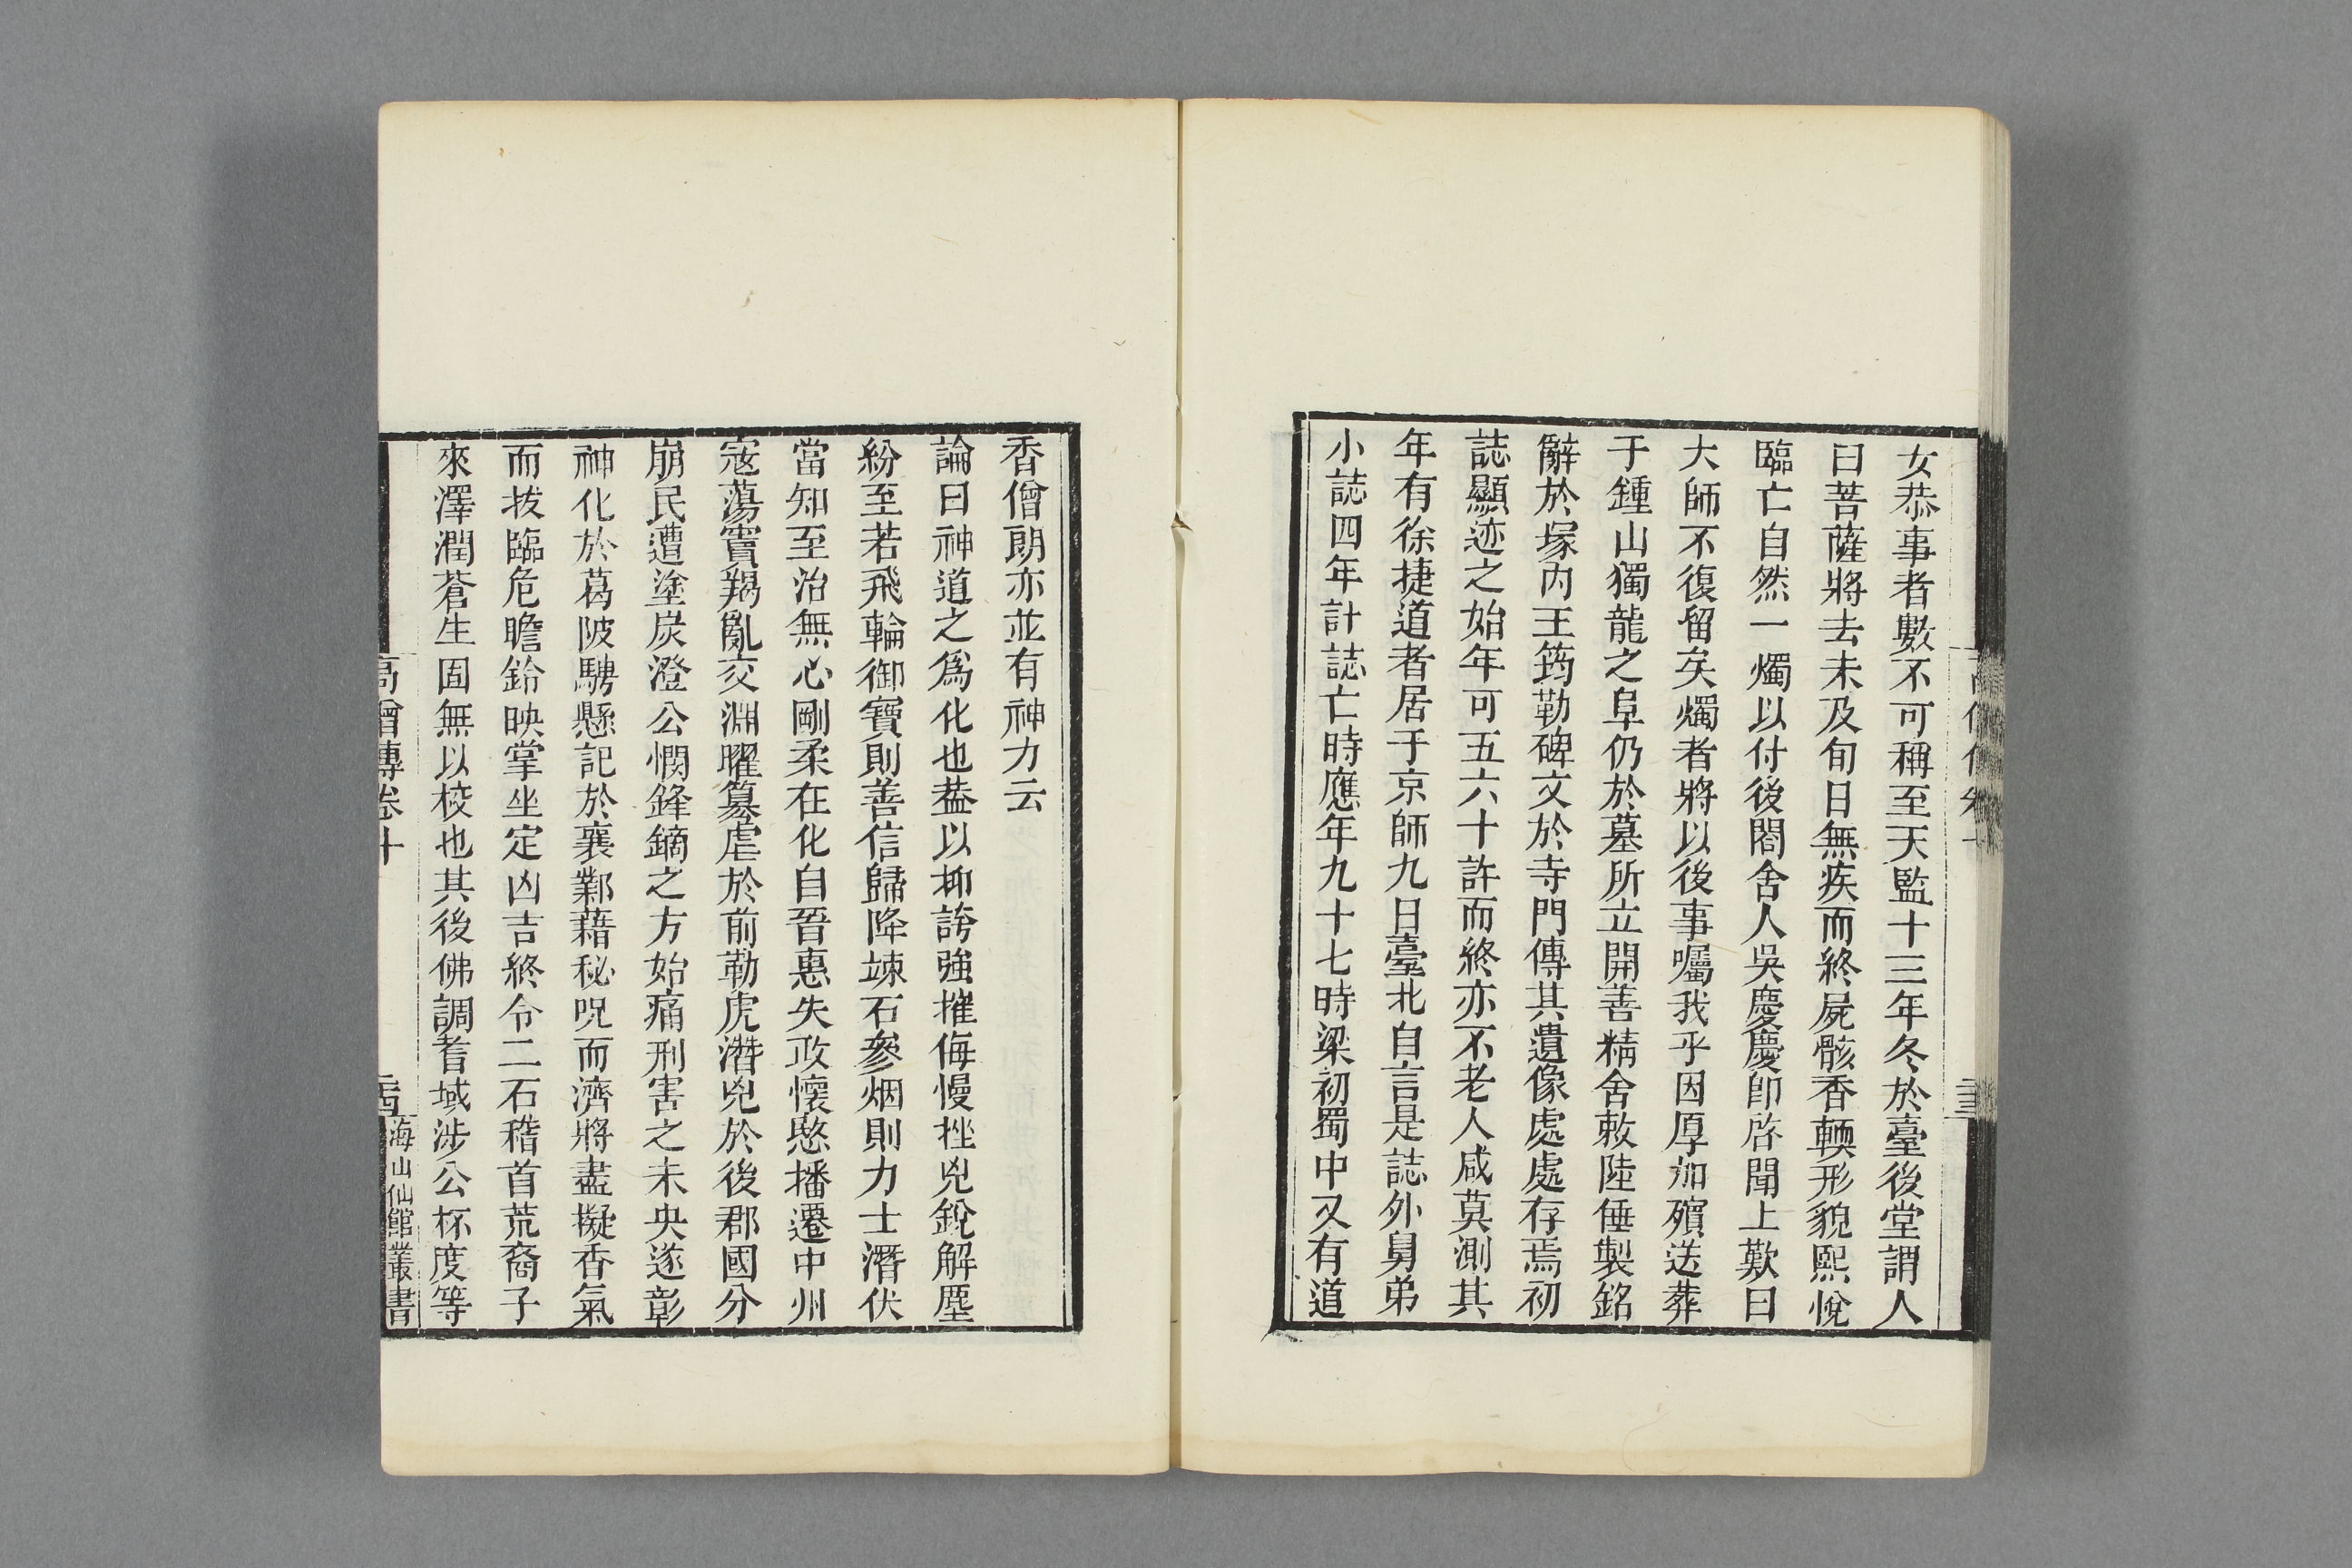 女恭事者數不可稱至天監十三年冬於臺後堂謂人
曰菩薩將去未及旬日無疾而終屍骸香輭形貌熙悅
臨亡自然一燭以付後閤舍人吳慶慶卽啓聞上歎曰
大師不復留矣燭者將以後事囑我乎因厚加殯送葬
于鍾山獨龍之阜仍於墓所立開善精舍敕陸倕製銘
辭於塚內王筠勒碑文於寺門傳其遺像處處存焉初
誌顯迹之始年可五六十許而終亦不老人咸莫測其
年有徐捷道者居于京師九日臺北自言是誌外舅弟
小誌四年計誌亡時應年九十七時梁初蜀中又有道
香僧朗亦並有神力云
論曰神道之爲化也葢以抑誇強摧侮慢挫兇銳解塵
紛至若飛輪御寶則善信歸降竦石參烟則力士潛伏
當知至治無心剛柔在化自晉惠失政懷愍播遷中州
寇蕩竇羯亂交淵曜篡虐於前勒虎潛兇於後郡國分
崩民遭塗炭澄公憫鋒鏑之方始痛刑害之未央遂彰
神化於葛陂騁懸記於襄鄴藉秘呪而濟將盡擬香氣
而拔臨危瞻鈴映掌坐定凶吉終令二石稽首荒裔子
來澤潤蒼生固無以校也其後佛調耆域涉公杯度等
高僧傳卷十
海山仙館叢書